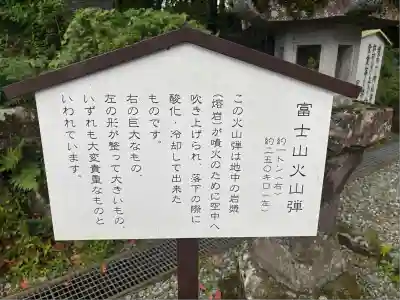 富士山火山弾
約一トン(右)
約二五〇キロ(左)
この火山弾は地中の岩漿
(溶岩)が噴火のために空中へ
吹き上げられ、落下の際に
酸化・冷却して出来た
ものです。
右の巨大なもの、
左の形が整って大きいもの、
いずれも大変貴重なものと
いわれています。